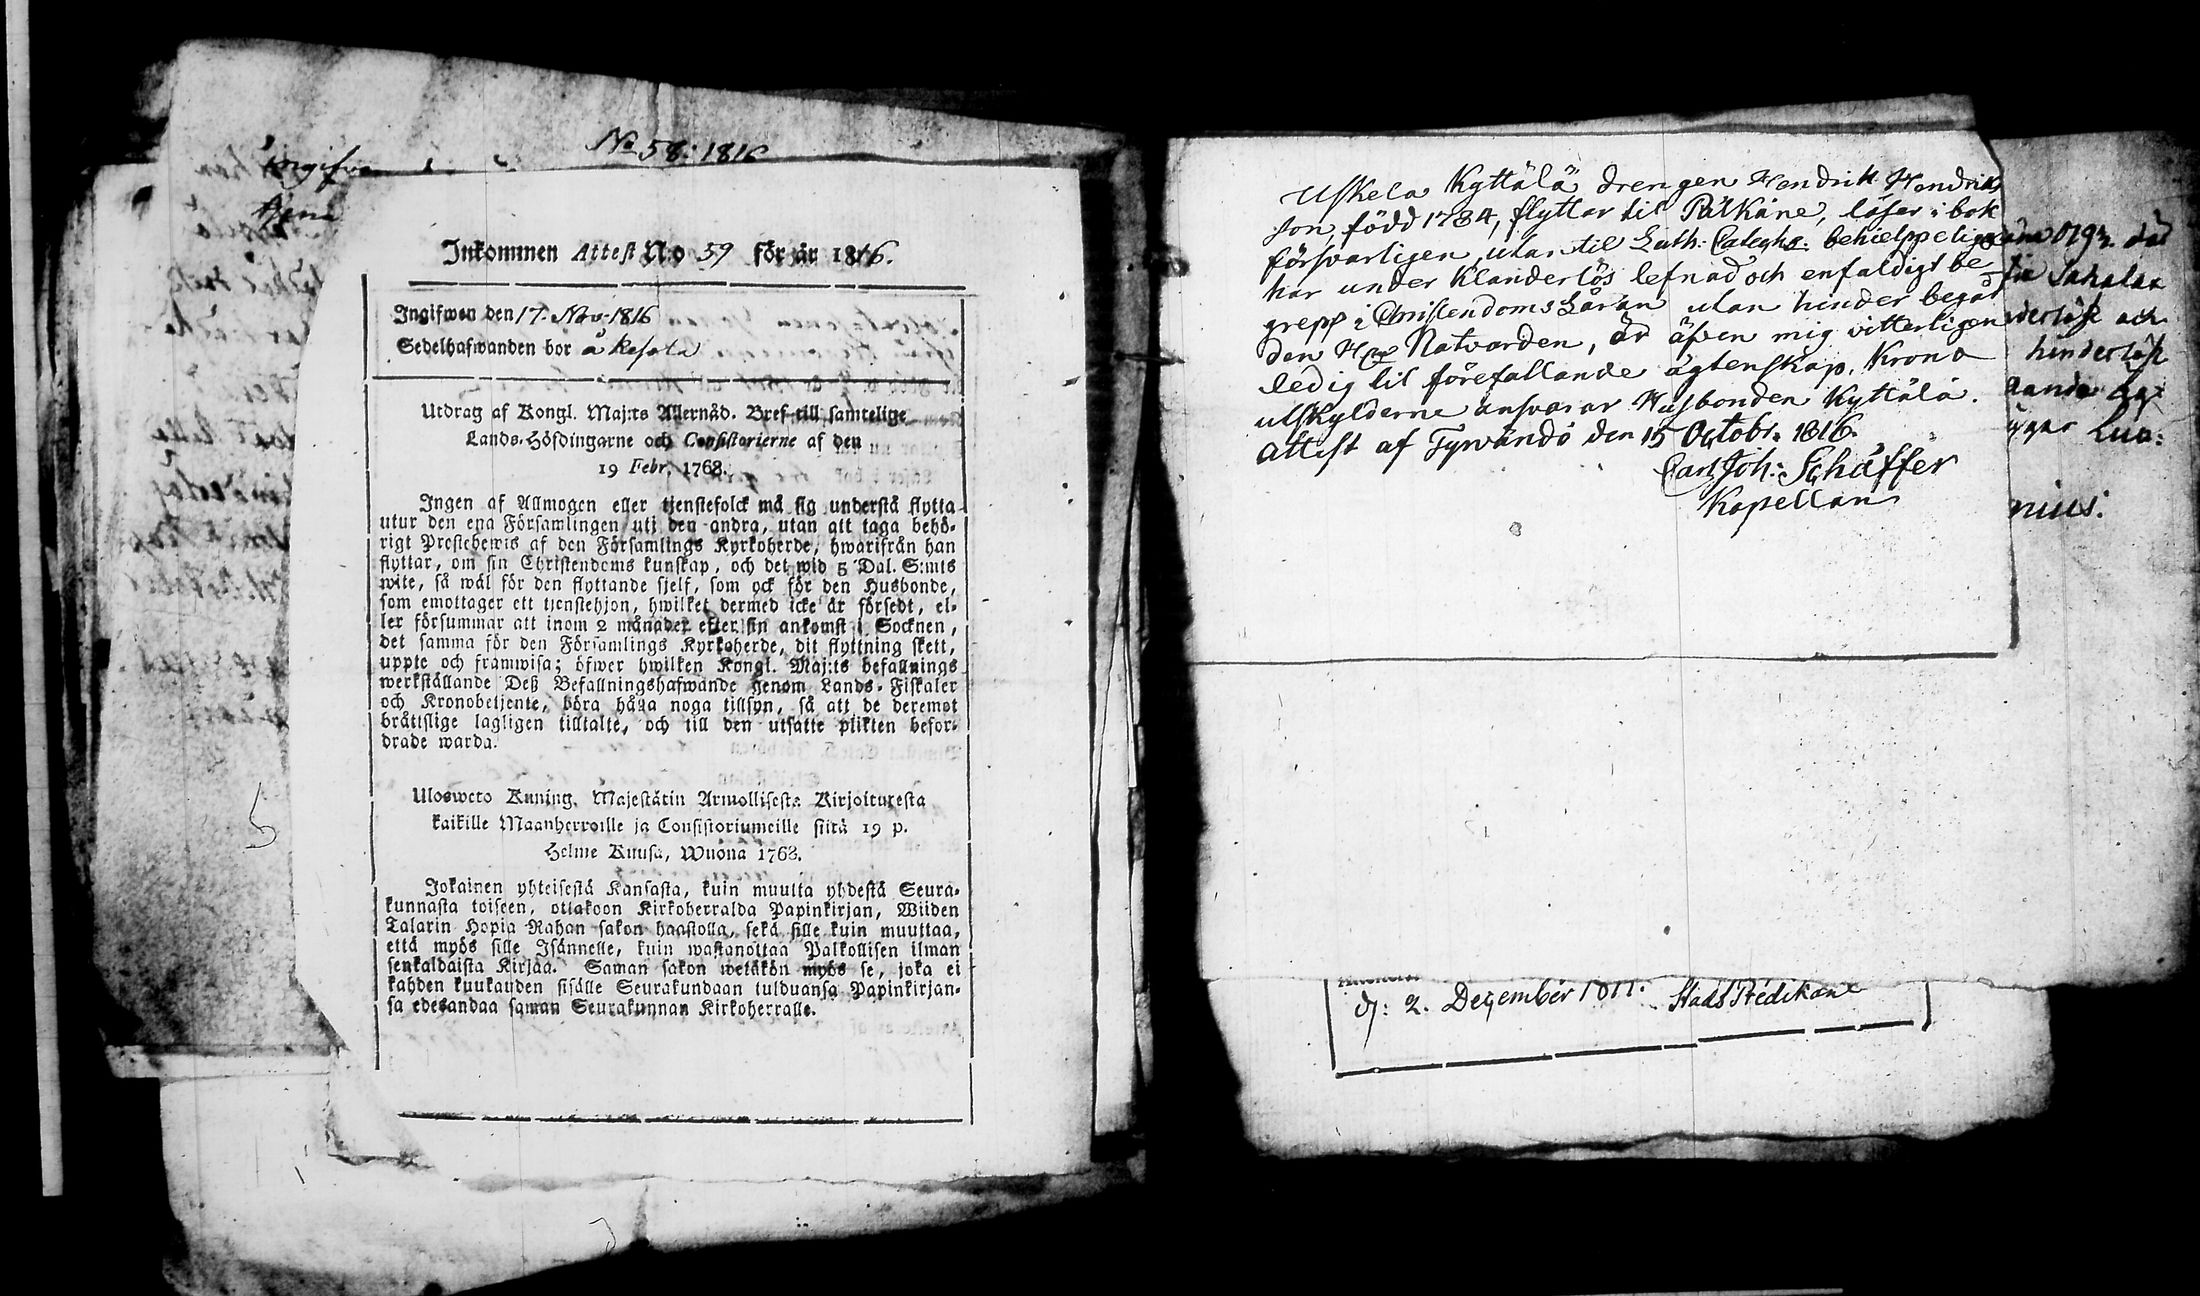 No 58: 1816
Inkommen Attest N:o 59 för år 1816.
Ingifwen den 17. Nov. 1816
Sedelhafwanden bor å Kesola
Utdrag af Kongl. Maj:ts Allernåd. Bref till samtelige
Lands-Höfdingarne och Consistorierne af den
19 Febr. 1768.
Ingen af Allmogen eller tjenstefolck må sig understå flytta
utur den ena Församlingen uti den andra, utan att taga behö-
rigt Prestebewis af den Församlings Kyrkoherde, hwarifrån han
flyttar, om sin Christendoms kunskap, och det wid 5 Dal. S:mts
wite, så wäl för den flyttande sjelf, som ock för den Husbonde,
som emottager ett tjenstehjon, hwilket dermed icke är försedt, el-
ler försummar att inom 2 månader efter sin ankomst i Socknen,
det samma för den Församlings Kyrkoherde, dit flyttning skett,
uppte och framwisa; öfwer hwilken Kongl. Maj:ts befallnings
werkställande Deß Befallningshafwande genom Lands-Fiskaler
och Kronobetjente, böra hålla noga tillsyn, så att de deremot
bråttslige lagligen tilltalte, och till den utsatte plikten befor-
drade warda.
Ulosweto Kuning. Majestätin Armollisesta Kirjoituxesta
kaikille Maanherroille ja Consistoriumeille siitä 19 p.
Helme Kuusa, Wuona 1768.
Jokainen yhteisestä Kansasta, kuin muutta yhdestä Seura-
kunnasta toiseen, ottakoon Kirkoherralda Papinkirjan, Wiiden
Talarin Hopia-Rahan sakon haastolla, sekä sille kuin muuttaa,
että myös sille Isännelle, kuin wastanottaa Palkollisen ilman
senkaldaista Kirjaa. Saman sakon wetäkön myös se, joka ei
kahden kuukauden sisälle Seurakundaan tulduansa Papinkirjan-
sa edesandaa saman Seurakunnan Kirkoherralle.
Uskela Kyttälä drengen Hendrik Hendrik
son, född 1784, flyttar til Pälkäne, läser i bok
försvarligen, utan til Luth: Catechs: behielppeligen
har under Klanderlös lefnad och enfaldigt be-
grepp i Christendoms Läran utan hinder begåt
den H. Natvarden, är äfven mig vitterligen
ledig til förefallande ägtenskap. Krono
utskylderne ansvarar Husbonden Kyttälä.
Attest af Tyrvändö den 15 Octobr. 1816.
Carl Joh: Schäffer
Kapellan
hinderlöst
nius:
d: 2. December 1811. Stads Predikant